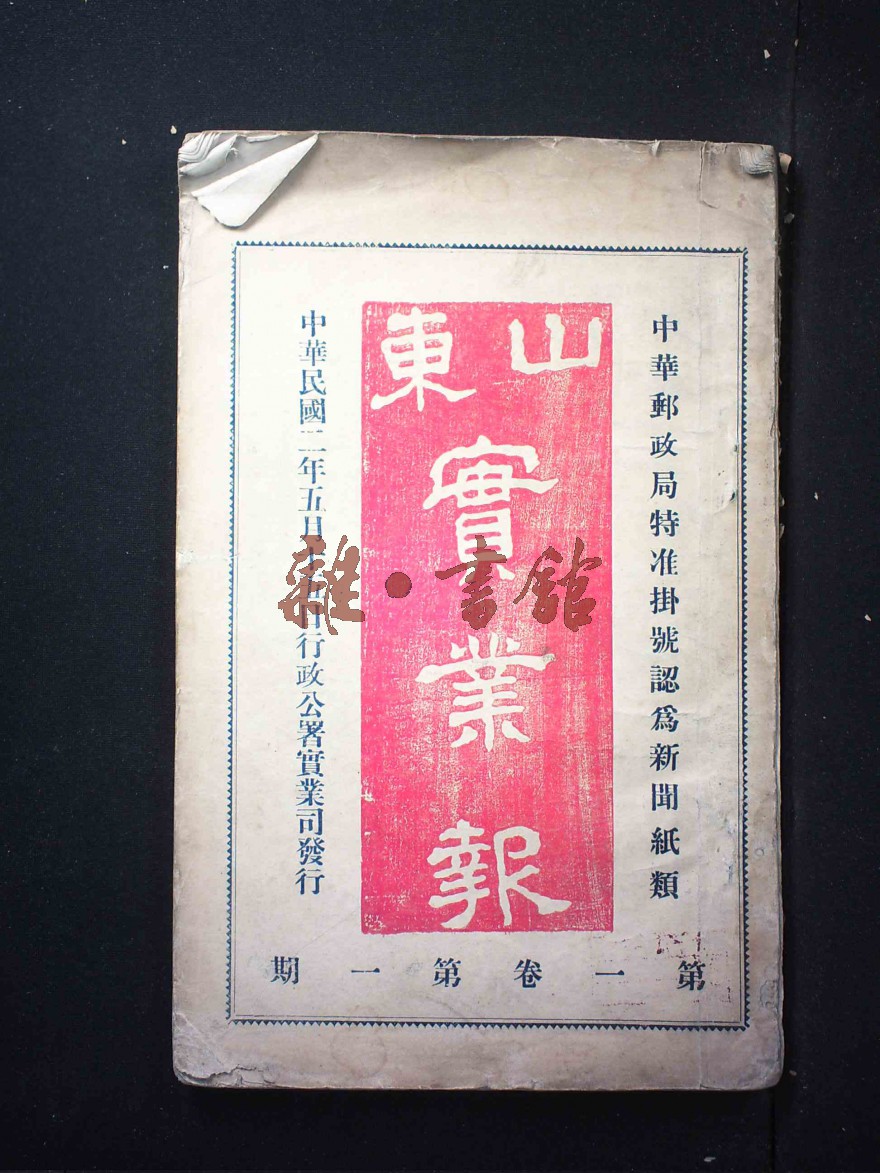 中華郵政局特准掛號認爲新聞紙類
山東
實業報
中華民國二年五月十五日行政公署實業司發行
第一卷第一期
雜·書館